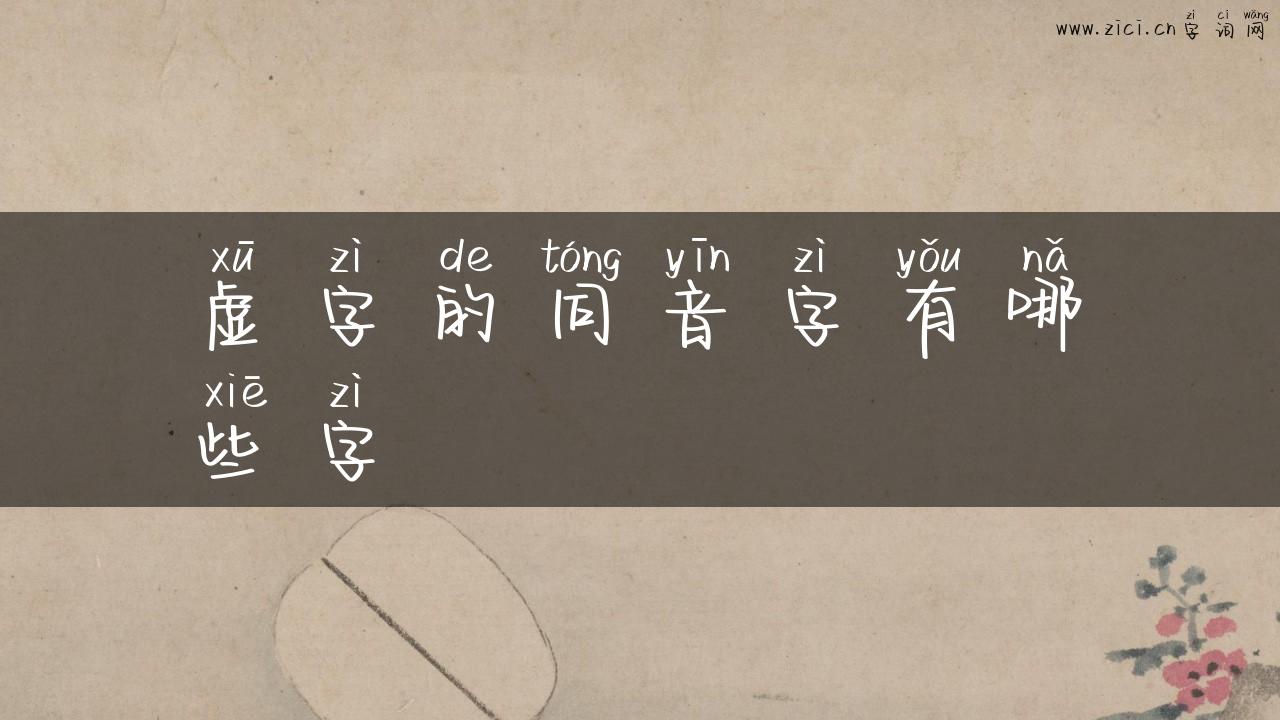 zì cí wǎng
www.zici.cn 字 词 网
xū zì de tóng yīn zì yǒu nǎ
虚 字 的 同 音 字 有 哪
xiē zì
些 字